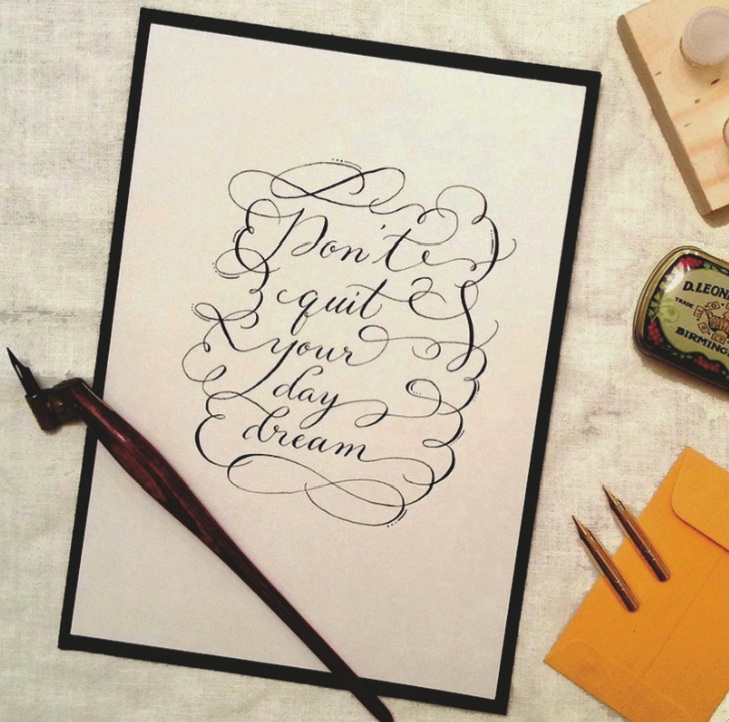 Don't
quit
your
day
dream
D. LEON
TRADE
BIRMING